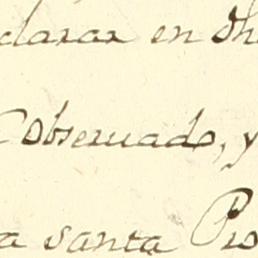 clarar en dh
Observado, y
a santa Pro